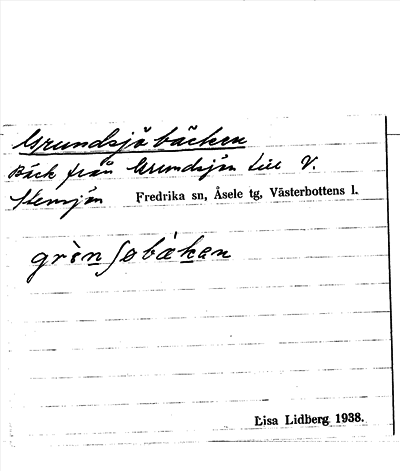 Grundsjöbäcken
Bäck från Grundsjön till V.
Stensjön Fredrika sn, Åsele tg, Västerbottens l.
Lisa Lidberg 1938.